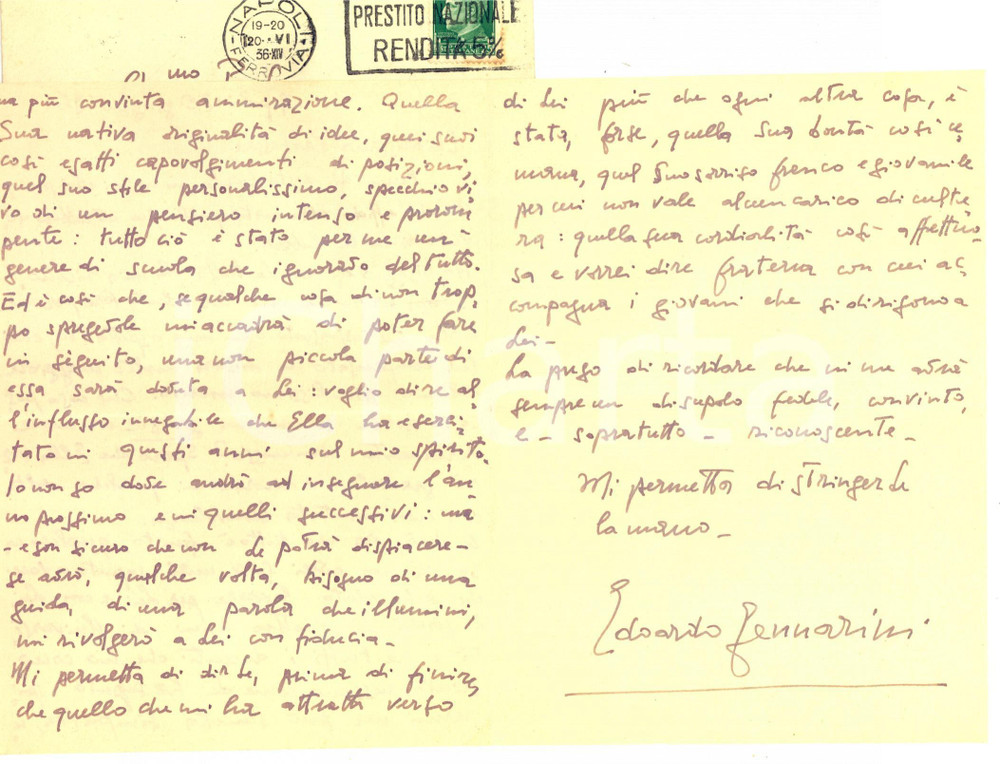 NAPOLI
19-20
20·VI
36·XIV
FERROVIA
PRESTITO NAZIONALE
RENDITA 5%
mia più convinta ammirazione. Quella
Sua nativa originalità di idee, quei suoi
così esatti capovolgimenti di posizioni,
quel suo stile personalissimo, specchio vi
vo di un pensiero intenso e prorom
pente: tutto ciò è stato per me un
genere di scuola che ignoravo del tutto.
Ed è così che, se qualche cosa di non trop
po spregevole mi accadrà di poter fare
in seguito, una non piccola parte di
essa sarà dovuta a Lei: voglio dire al
l'influsso innegabile che Ella ha eserci
tato in questi anni sul mio spirito.
Io non so dove andrò ad insegnare l'an
no prossimo e in quelli successivi: ma
- e son sicuro che non Le potrà dispiacere -
se avrò, qualche volta, bisogno di una
guida, di una parola che illumini,
mi rivolgerò a Lei con fiducia -
Mi permetta di dirLe, prima di finire,
che quello che mi ha attratto verso
di Lei più che ogni altra cosa, è
stata, forse, quella Sua bontà così u
mana, quel Suo sorriso franco e giovanile
per cui non vale alcun carico di cultu
ra: quella sua cordialità così affettuo-
sa e vorrei dire fraterna con cui ac
compagna i giovani che si dirigono a
Lei -
La prego di ricordare che in me avrà
sempre un discepolo fedele, convinto,
e - sopratutto - riconoscente -
Mi permetta di stringerLe
la mano -
Edoardo Gennarini
iCharta